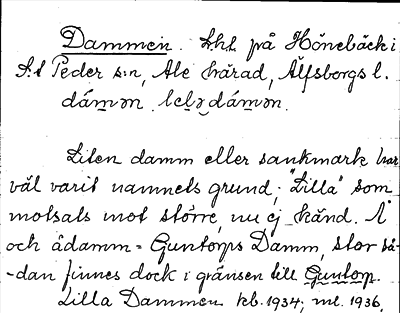 Dammen. Lht på Hönebäck i
S:t Peder s:n, Ale härad, Älfsborgs l.
dámən. lɛlə dámən.
Liten damm eller sankmark har
väl varit namnets grund; "Lilla" som
motsats mot större, nu ej känd. Å
och ådamm = Guntorps Damm, stor så-
-dan finnes dock i gränsen till Guntorp.
Lilla Dammen kb. 1934; ml. 1936.